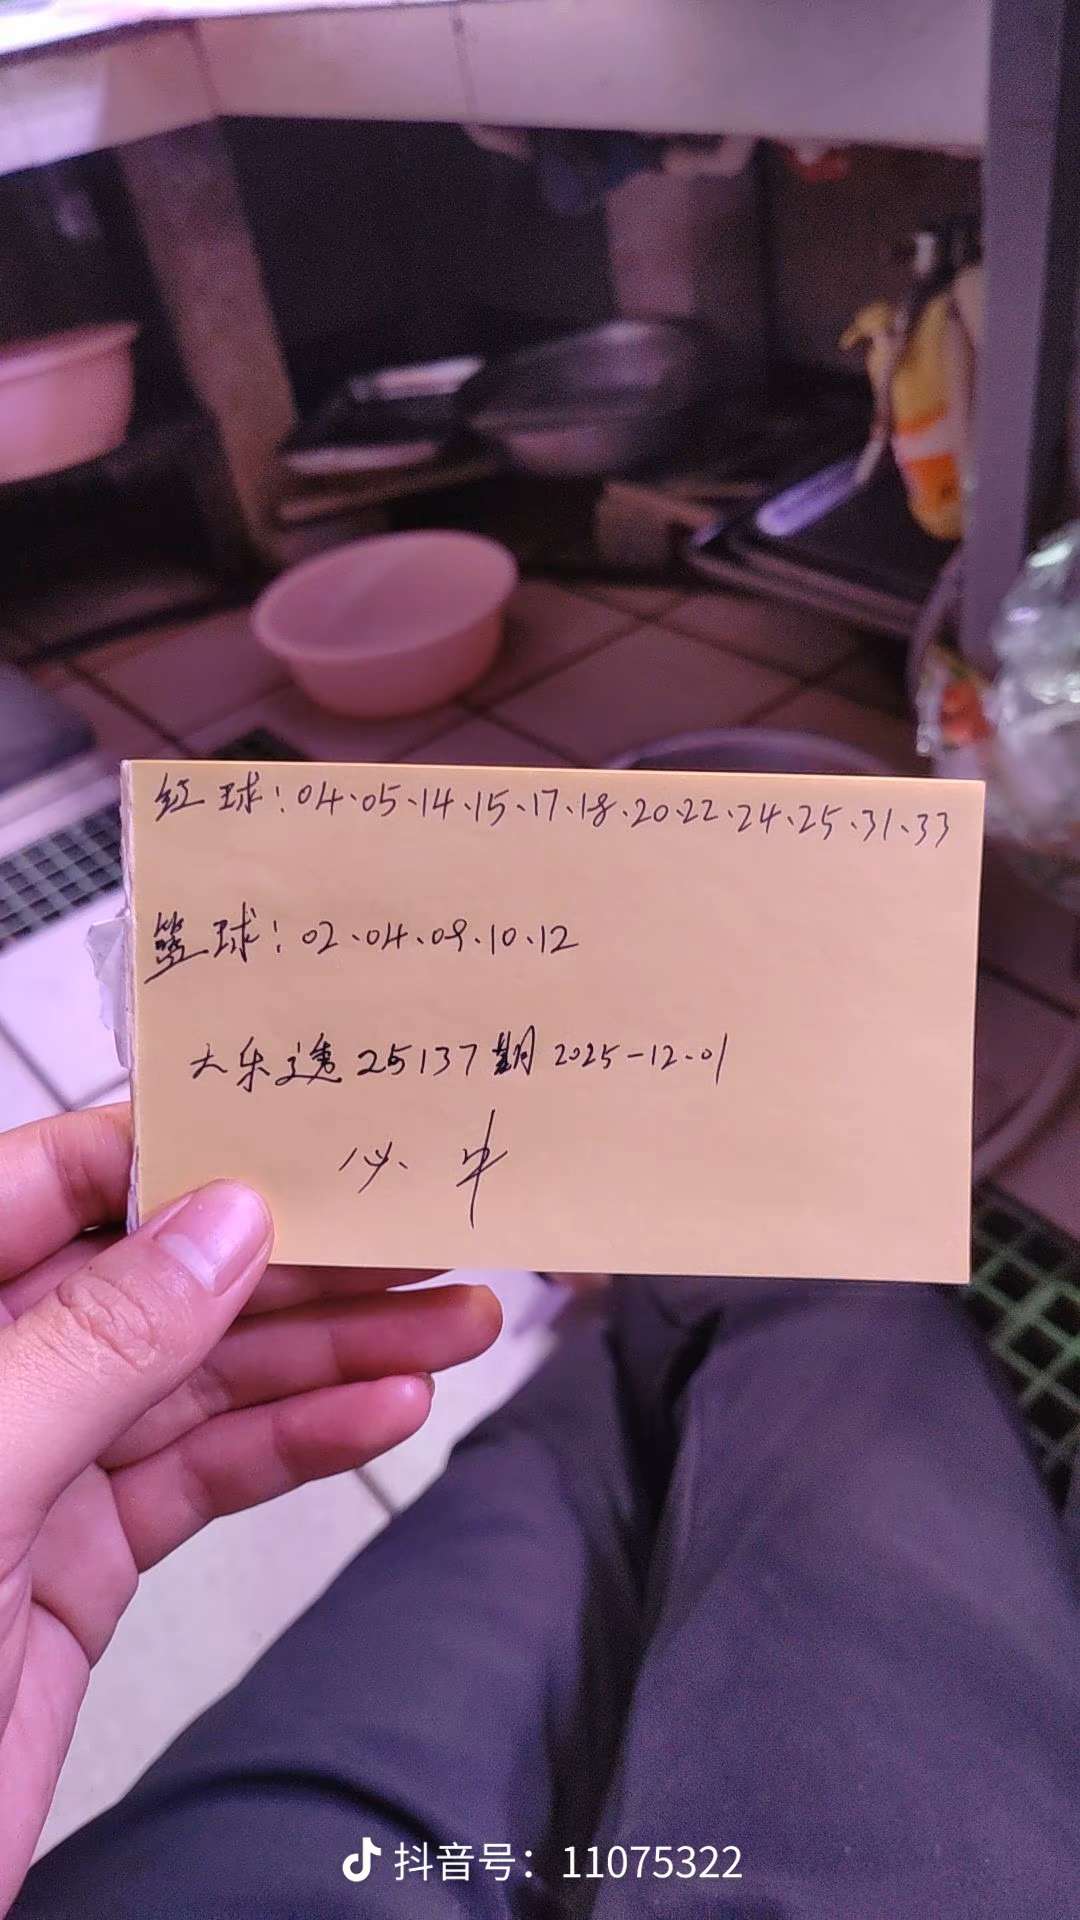 红球：04、05、14、15、17、18、20、22、24、25、31、33
篮球：02、04、09、10、12
大乐透25137期 2025-12-01
必中
抖音号：11075322